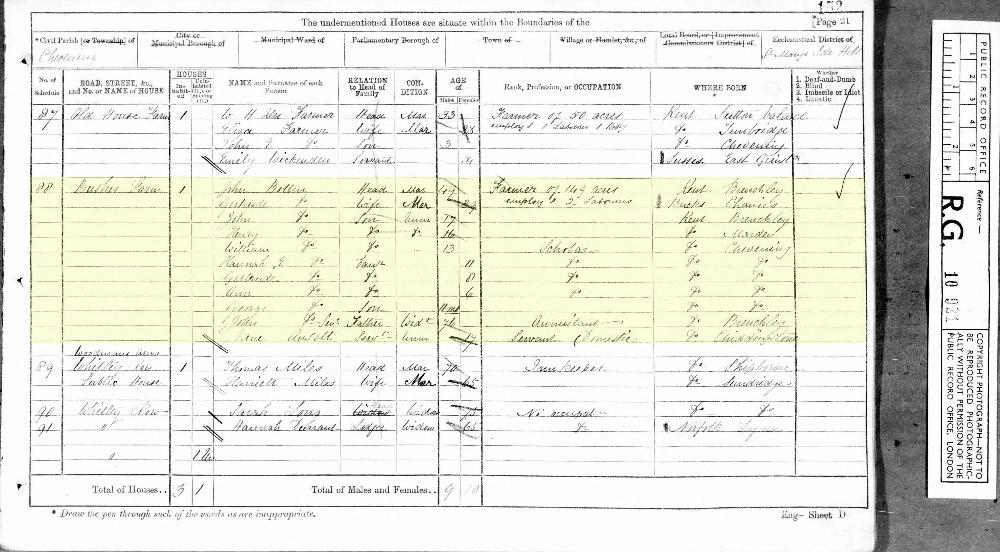 132
The undermentioned Houses are situate within the Boundaries of the
[Page 21
*Civil Parish [or Township] of
City or Municipal Borough of
Municipal Ward of
Parliamentary Borough of
Town of
Village or Hamlet, &c., of
Local Board, or [Improvement Commissioners District] of
Ecclesiastical District of
Chevening
St Marys Ide Hill
No. of Schedule
ROAD, STREET, &c., and No. or NAME of HOUSE
HOUSES
Inhabited
Uninhabited (U.), or Building (B.)
NAME and Surname of each Person
RELATION to Head of Family
CONDITION
AGE
Males
Females
Rank, Profession, or OCCUPATION
WHERE BORN
Whether
1. Deaf-and-Dumb
2. Blind
3. Imbecile or Idiot
4. Lunatic
87 Old House Farm 1 Farmer Head Mar 33 Farmer of 50 acres Kent Sutton Valence
Eliza Farmer Wife Mar 28 employs 1 Labourer 1 Boy Do Tunbridge
John Do Son 3 Do Chevening
Emily Wickenden Servant Sussex East
88 Farm 1 John Head Mar 49 Farmer of 149 acres Kent Brenchley
Gertrude Do Wife Mar employs 2 Labourers Bucks
John Do Son Unm 17 Kent Brenchley
Henry Do Do Do 16 Do Marden
William Do Do 13 Scholar Do Chevening
Hannah Do Daur 11 Do Do Do
Gertrude Do Do 8 Do Do Do
Ann Do Do 6 Do Do Do
George Do Son 11 mo Do Do
John Do Senr Father Widr 76 Annuitant Do Brenchley
Jane Servt Unm 17 Servant (Domestic) Do Chiddingstone
89 1 Thomas Miles Head Mar 70 Innkeeper Do Shipborne
Public House Harriett Miles Wife Mar 65 Do Sundridge
90 Whitley Row Sarah Long Widow No occupatn Do Do
91 " Hannah Lodger Widow Do Norfolk Lynn
" 1 Un
Total of Houses.. 3 1
Total of Males and Females.. 9 10
* Draw the pen through such of the words as are inappropriate.
Eng- Sheet D
PUBLIC RECORD OFFICE
1 2 3 4 5 6
Reference :-
R.G. 10 921
COPYRIGHT PHOTOGRAPH—NOT TO BE REPRODUCED PHOTOGRAPHICALLY WITHOUT PERMISSION OF THE PUBLIC RECORD OFFICE, LONDON